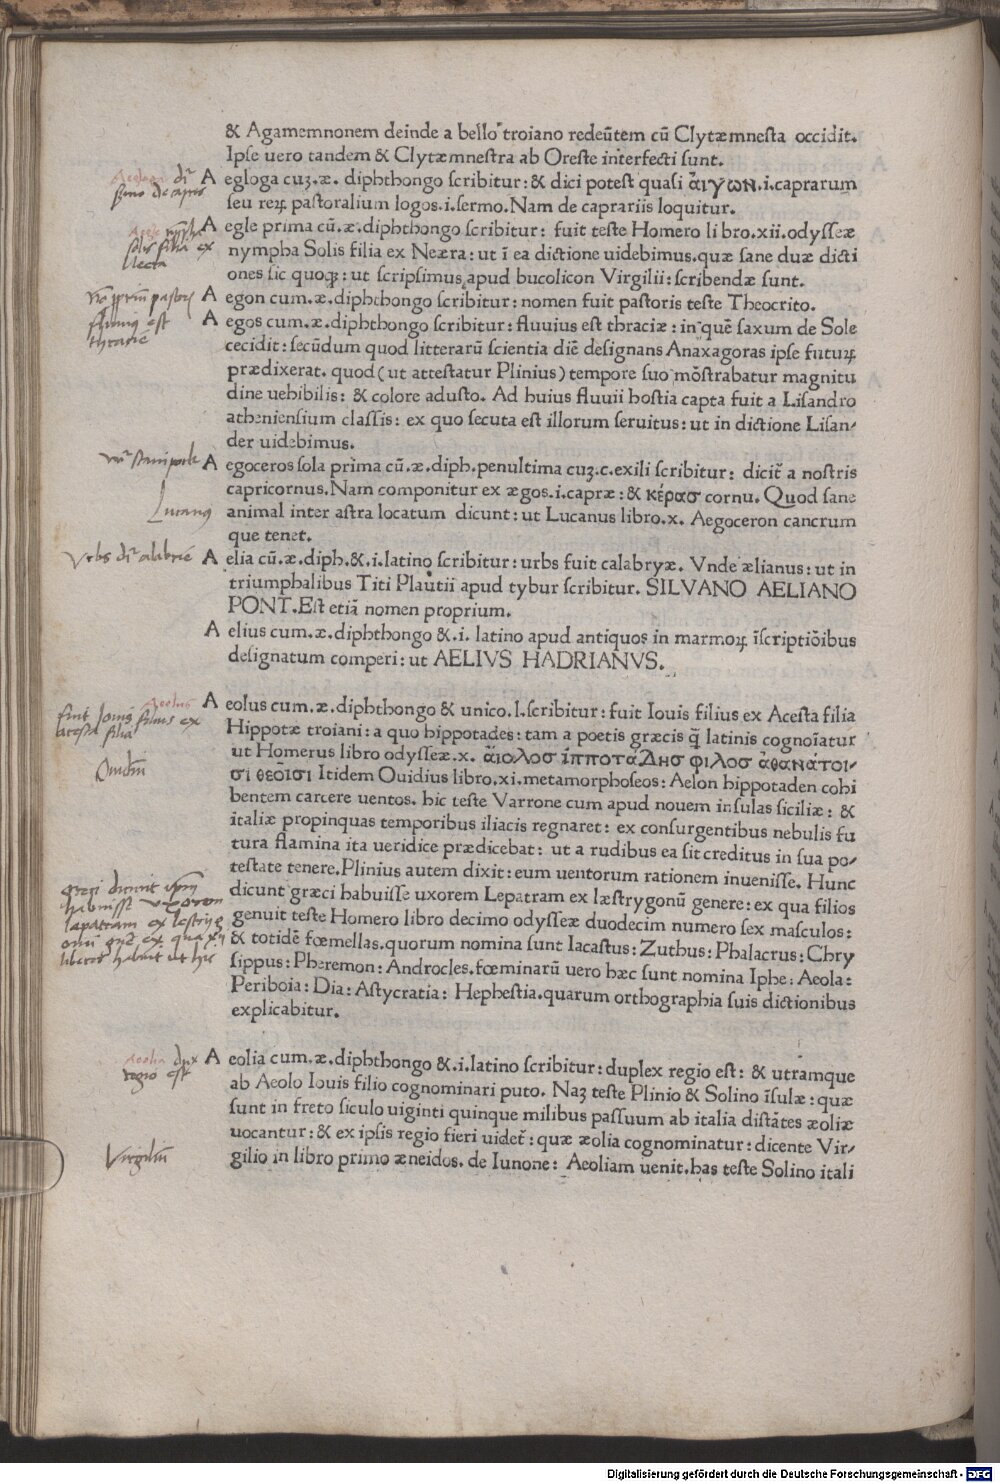 & Agamemnonem deinde a bello troiano redeũtem cũ Clytæmnesta occidit.
Ipse uero tandem & Clytæmnestra ab Oreste interfecti sunt.
A egloga cuʒ.æ. diphthongo scribitur: & dici potest quasi ἀιγων.i.caprarum
seu reꝝ pastoralium logos.i.sermo. Nam de caprariis loquitur.
A egle prima cũ.æ.diphthongo scribitur: fuit teste Homero libro.xii.odysseæ
nympha Solis filia ex Neæra: ut ĩ ea dictione uidebimus.quæ sane duæ dicti
ones sic quoqꝫ: ut scripsimus apud bucolicon Virgilii: scribendæ sunt.
A egon cum.æ.diphthongo scribitur: nomen fuit pastoris teste Theocrito.
A egos cum.æ.diphthongo scribitur: fluuius est thraciæ: in quẽ saxum de Sole
cecidit: secũdum quod litterarũ scientia diẽ designans Anaxagoras ipse futuꝝ
prædixerat. quod (ut attestatur Plinius) tempore suo mõstrabatur magnitu
dine uehibilis: & colore adusto. Ad huius fluuii hostia capta fuit a Lisandro
atheniensium classis: ex quo secuta est illorum seruitus: ut in dictione Lisan-
der uidebimus.
A egoceros sola prima cũ.æ.diph.penultima cuʒ.c.exili scribitur: dicit̃ a nostris
capricornus. Nam componitur ex ægos.i.capræ: & κέρασ cornu. Quod sane
animal inter astra locatum dicunt: ut Lucanus libro.x. Aegoceron cancrum
que tenet.
A elia cũ.æ.diph.&.i.latino scribitur: urbs fuit calabryæ. Vnde ælianus: ut in
triumphalibus Titi Plautii apud tybur scribitur. SILVANO AELIANO
PONT. Est etiã nomen proprium.
A elius cum.æ.diphthongo &.i. latino apud antiquos in marmoꝝ ĩscriptiõibus
designatum comperi: ut AELIVS HADRIANVS.
A eolus cum.æ.diphthongo & unico.l.scribitur: fuit Iouis filius ex Acesta filia
Hippotæ troiani: a quo hippotades: tam a poetis græcis q̃ latinis cognoĩatur
ut Homerus libro odysseæ.x. ἄιολοσ ἱπποτάδησ φιλοσ ἀθανάτοι-
σι θεοῖσι Itidem Ouidius libro.xi.metamorphoseos: Aelon hippotaden cohi
bentem carcere uentos. hic teste Varrone cum apud nouem insulas siciliæ: &
italiæ propinquas temporibus iliacis regnaret: ex consurgentibus nebulis fu
tura flamina ita ueridice prædicebat: ut a rudibus ea sit creditus in sua po-
testate tenere. Plinius autem dixit: eum uentorum rationem inuenisse. Hunc
dicunt græci habuisse uxorem Lepatram ex læstrygonũ genere: ex qua filios
genuit teste Homero libro decimo odysseæ duodecim numero sex masculos:
& totidẽ fœmellas.quorum nomina sunt Iacastus: Zuthus: Phalacrus: Chry
sippus: Pheremon: Androcles. fœminarũ uero hæc sunt nomina Iphe: Aeola:
Periboia: Dia: Astycratia: Hephestia.quarum orthographia suis dictionibus
explicabitur.
A eolia cum.æ.diphthongo &.i.latino scribitur: duplex regio est: & utramque
ab Aeolo Iouis filio cognominari puto. Naʒ teste Plinio & Solino ĩsulæ: quæ
sunt in freto siculo uiginti quinque milibus passuum ab italia distãtes æoliæ
uocantur: & ex ipsis regio fieri uidet̃: quæ æolia cognominatur: dicente Vir-
gilio in libro primo æneidos. de Iunone: Aeoliam uenit.has teste Solino itali
Lucanus
Aeolus
fuit Iouis filius ex
acesta filia
Ouidiũ
habuisse uxorem
lapatram ex lestryg
Aeolia dux
regio est
Virgiliũ
Digitalisierung gefördert durch die Deutsche Forschungsgemeinschaft - DFG